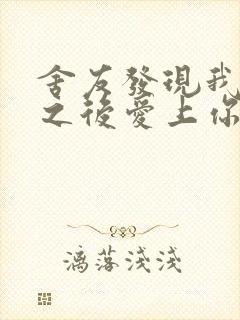 舍友發現我
之後愛上你
漓落淺淺